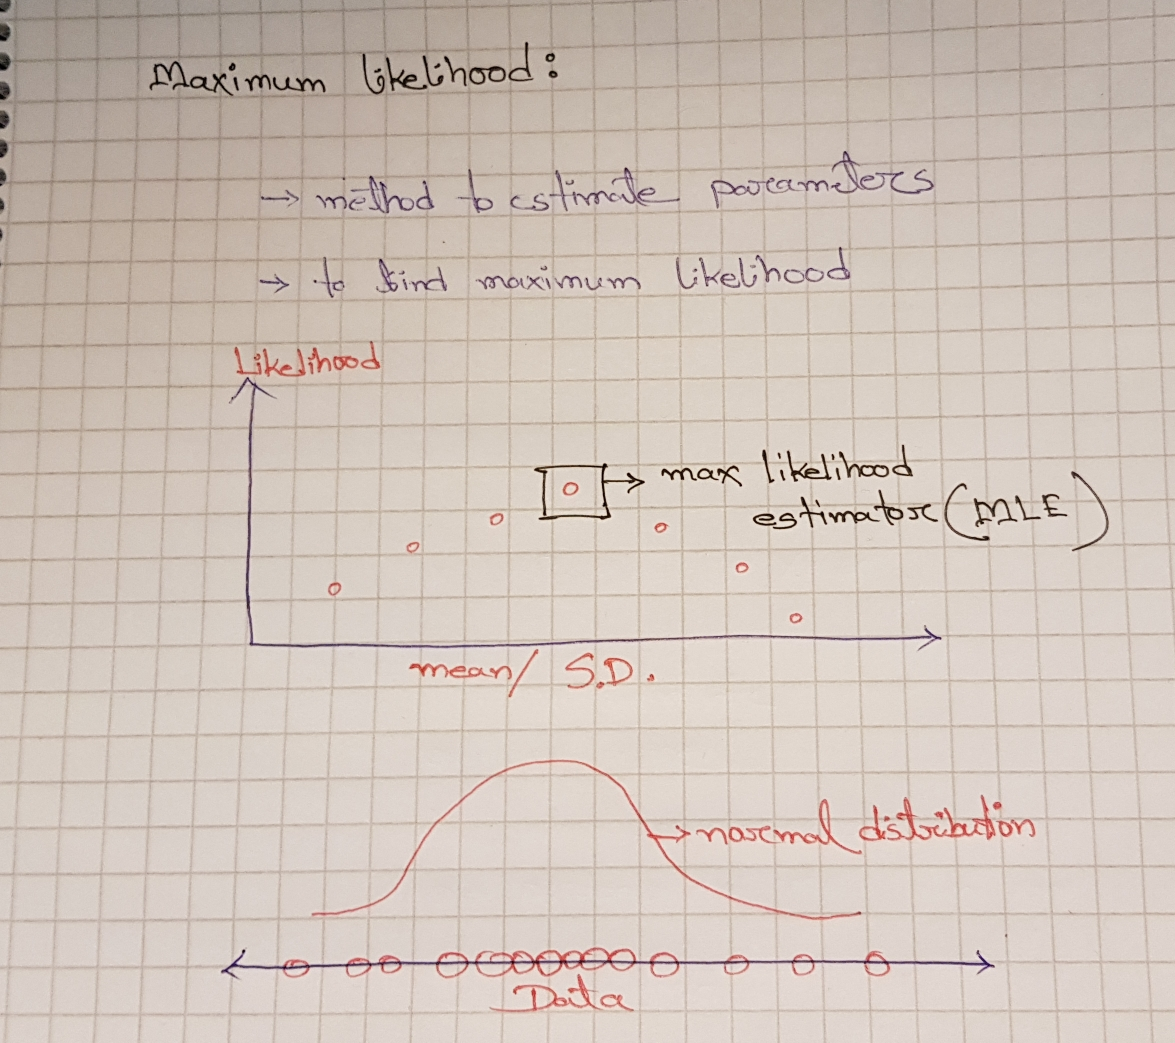 Maximum likelihood:
→ method to estimate parameters
→ to find maximum likelihood
Likelihood
→ max likelihood
estimator (MLE)
mean/ S.D.
→ normal distribution
Data